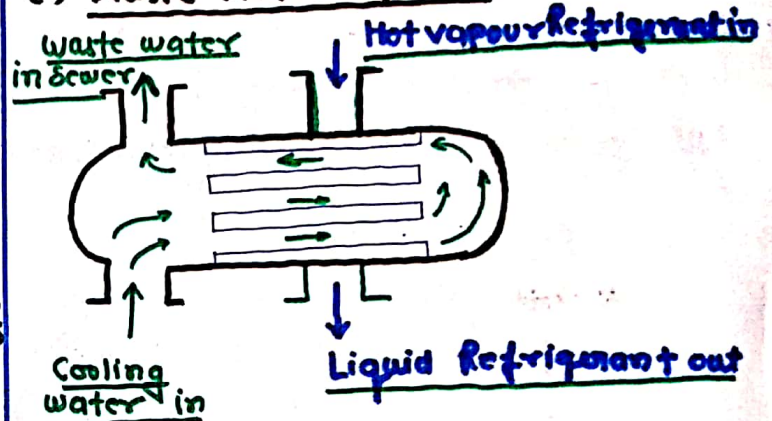 Waste water
in Sewer
Hot vapour Refrigerant in
Cooling
water in
Liquid Refrigerant out